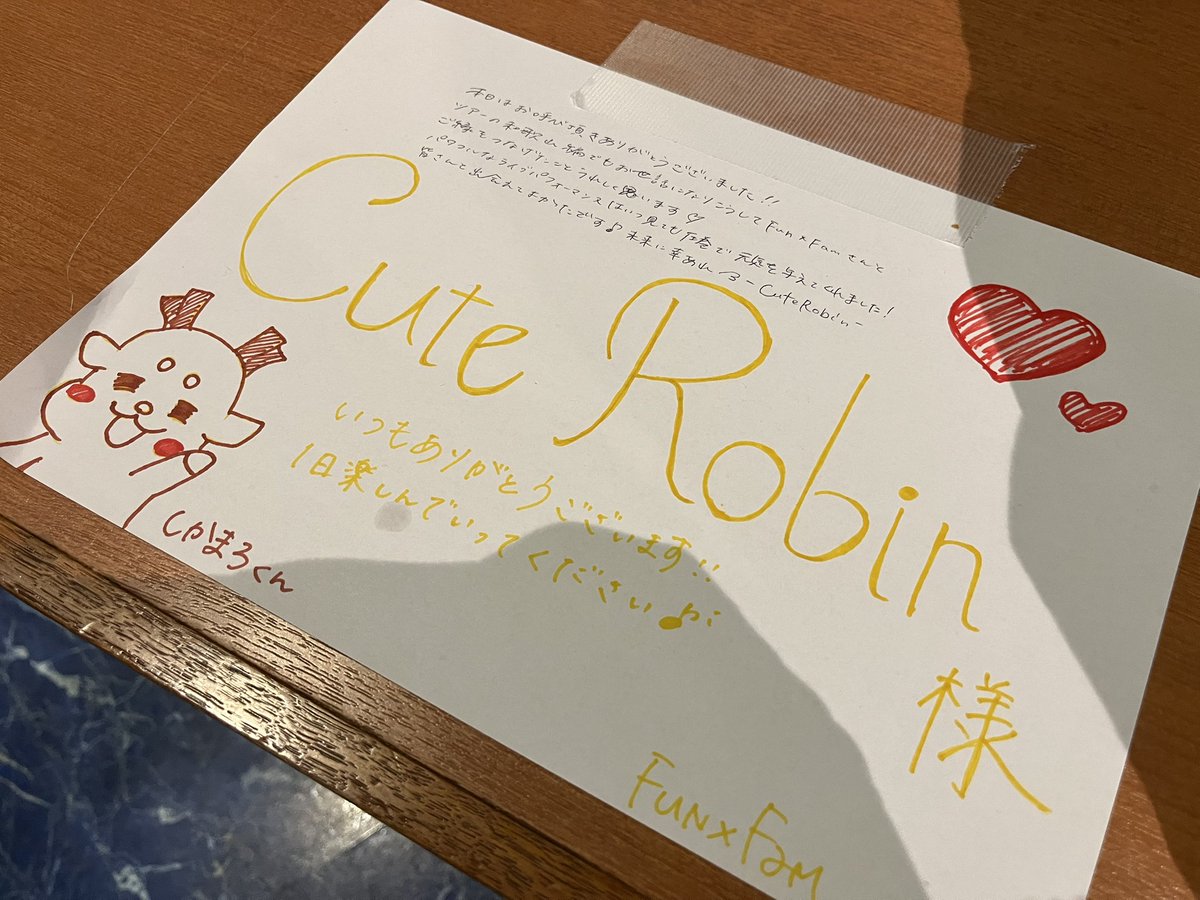 本日はお呼び頂きありがとうございました!!
ツアーの和歌山編でもお世話になりこうしてFun×Famさんと
ご縁をつなげたことうれしく思います♡
パワフルなライブパフォーマンスはいつ見ても圧巻で元気を与えてくれました!
皆さんと出会えてよかったです♪ 未来に幸あれ
-CuteRobin-
Cute Robin
様
いつもありがとうございます!!
1日楽しんでいってください♪
しかまろくん
FUN×FaM